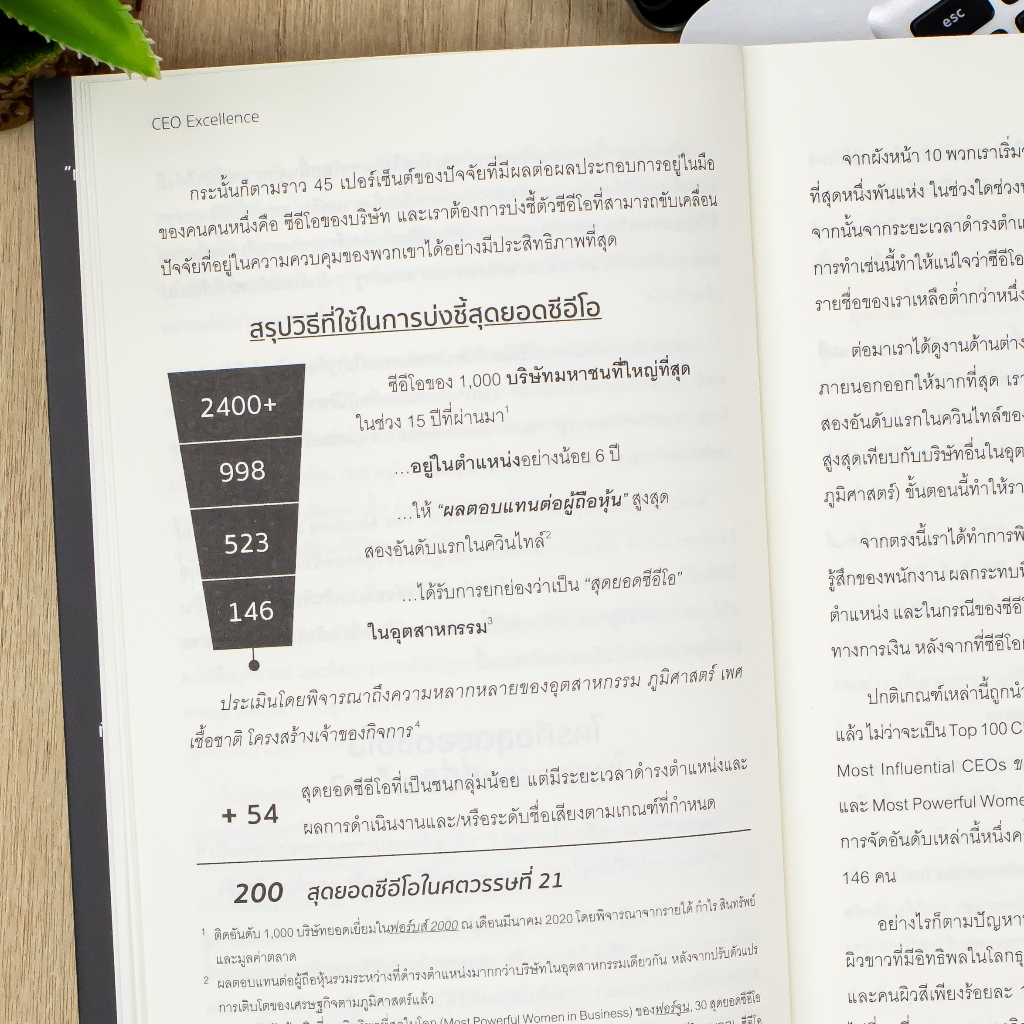 esc
CEO Excellence
กระนั้นก็ตามราว 45 เปอร์เซ็นต์ของปัจจัยที่มีผลต่อผลประกอบการอยู่ในมือ
ของคนคนหนึ่งคือ ซีอีโอของบริษัท และเราต้องการบ่งชี้ตัวซีอีโอที่สามารถขับเคลื่อน
ปัจจัยที่อยู่ในความควบคุมของพวกเขาได้อย่างมีประสิทธิภาพที่สุด
สรุปวิธีที่ใช้ในการบ่งชี้สุดยอดซีอีโอ
2400+
ซีอีโอของ 1,000 บริษัทมหาชนที่ใหญ่ที่สุด
ในช่วง 15 ปีที่ผ่านมา¹
998
...อยู่ในตำแหน่งอย่างน้อย 6 ปี
523
...ให้ “ผลตอบแทนต่อผู้ถือหุ้น” สูงสุด
สองอันดับแรกในควินไทล์²
146
...ได้รับการยกย่องว่าเป็น “สุดยอดซีอีโอ”
ในอุตสาหกรรม³
ประเมินโดยพิจารณาถึงความหลากหลายของอุตสาหกรรม ภูมิศาสตร์ เพศ
เชื้อชาติ โครงสร้างเจ้าของกิจการ⁴
+ 54
สุดยอดซีอีโอที่เป็นชนกลุ่มน้อย แต่มีระยะเวลาดำรงตำแหน่งและ
ผลการดำเนินงานและ/หรือระดับชื่อเสียงตามเกณฑ์ที่กำหนด
200 สุดยอดซีอีโอในศตวรรษที่ 21
¹ ติดอันดับ 1,000 บริษัทยอดเยี่ยมในฟอร์บส์ 2000 ณ เดือนมีนาคม 2020 โดยพิจารณาจากรายได้ กำไร สินทรัพย์
และมูลค่าตลาด
² ผลตอบแทนต่อผู้ถือหุ้นรวมระหว่างที่ดำรงตำแหน่งมากกว่าบริษัทในอุตสาหกรรมเดียวกัน หลังจากปรับตัวแปร
การเติบโตของเศรษฐกิจตามภูมิศาสตร์แล้ว
(Most Powerful Women in Business) ของฟอร์จูน, 30 สุดยอดซีอีโอ
จากผังหน้า 10 พวกเราเริ่ม
ที่สุดหนึ่งพันแห่ง ในช่วงใดช่วง
จากนั้นจากระยะเวลาดำรงตำแ
การทำเช่นนี้ทำให้แน่ใจว่าซีอีโอ
รายชื่อของเราเหลือต่ำกว่าหนึ่ง
ต่อมาเราได้ดูงานด้านต่าง
ภายนอกออกให้มากที่สุด เรา
สองอันดับแรกในควินไทล์ของ
สูงสุดเทียบกับบริษัทอื่นในอุต
ภูมิศาสตร์) ขั้นตอนนี้ทำให้รา
จากตรงนี้เราได้ทำการพิ
รู้สึกของพนักงาน ผลกระทบ
ตำแหน่ง และในกรณีของซีอี
ทางการเงิน หลังจากที่ซีอีโอ
ปกติเกณฑ์เหล่านี้ถูกนำ
แล้ว ไม่ว่าจะเป็น Top 100 C
Most Influential CEOs ข
และ Most Powerful Wome
การจัดอันดับเหล่านี้หนึ่งค
146 คน
อย่างไรก็ตามปัญหา
ผิวขาวที่มีอิทธิพลในโลกธุ
และคนผิวสีเพียงร้อยละ 1